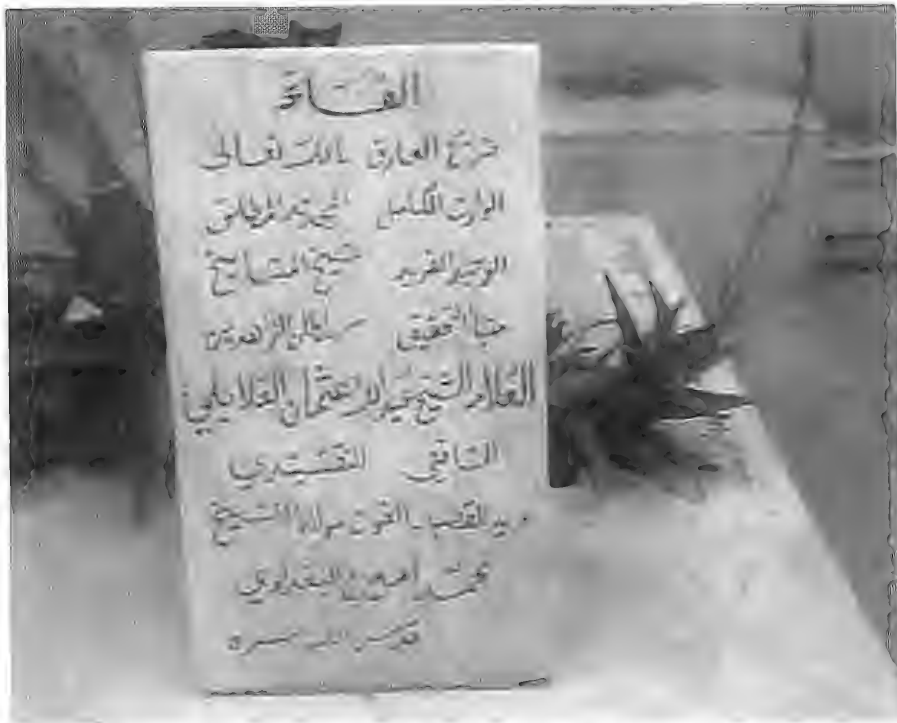 الفـاتحة
ضريح العارف بالله تعالى
الوارث الكامل المجتهد المطلق
الوحيد الفريد شيخ المشايخ
التحقيق
العلامة الشيخ عثمان القلايلي
الشافعي النقشبندي
مريد القطب الغوث مولانا الشيخ
محمد أمين البغدادي
قدس الله سره